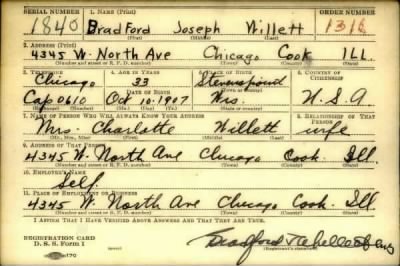 SERIAL NUMBER 1. NAME (Print) ORDER NUMBER
1840 Bradford Joseph Willett 1316
(First) (Middle) (Last)
2. ADDRESS (Print)
4345 W. North Ave Chicago Cook ILL
(Number and street or R. F. D. number) (Town) (County) (State)
3. TELEPHONE 4. AGE IN YEARS 5. PLACE OF BIRTH 6. COUNTRY OF CITIZENSHIP
Chicago 33
DATE OF BIRTH
Cap 0610 Oct 10-1907 Wis. U.S.A
7. NAME OF PERSON WHO WILL ALWAYS KNOW YOUR ADDRESS 8. RELATIONSHIP OF THAT PERSON
Mrs. Charlotte Willett wife
(Mr., Mrs., Miss) (First) (Middle) (Last)
9. ADDRESS OF THAT PERSON
4345 W. North Ave Chicago Cook. Ill
(Number and street or R. F. D. number) (Town) (County) (State)
10. EMPLOYER'S NAME
Self.
11. PLACE OF EMPLOYMENT OR BUSINESS
4345 W. North Ave Chicago Cook. Ill
(Number and street or R. F. D. number) (Town) (County) (State)
I AFFIRM THAT I HAVE VERIFIED ABOVE ANSWERS AND THAT THEY ARE TRUE.
REGISTRATION CARD
D. S. S. Form 1 Bradford
(Registrant's signature)